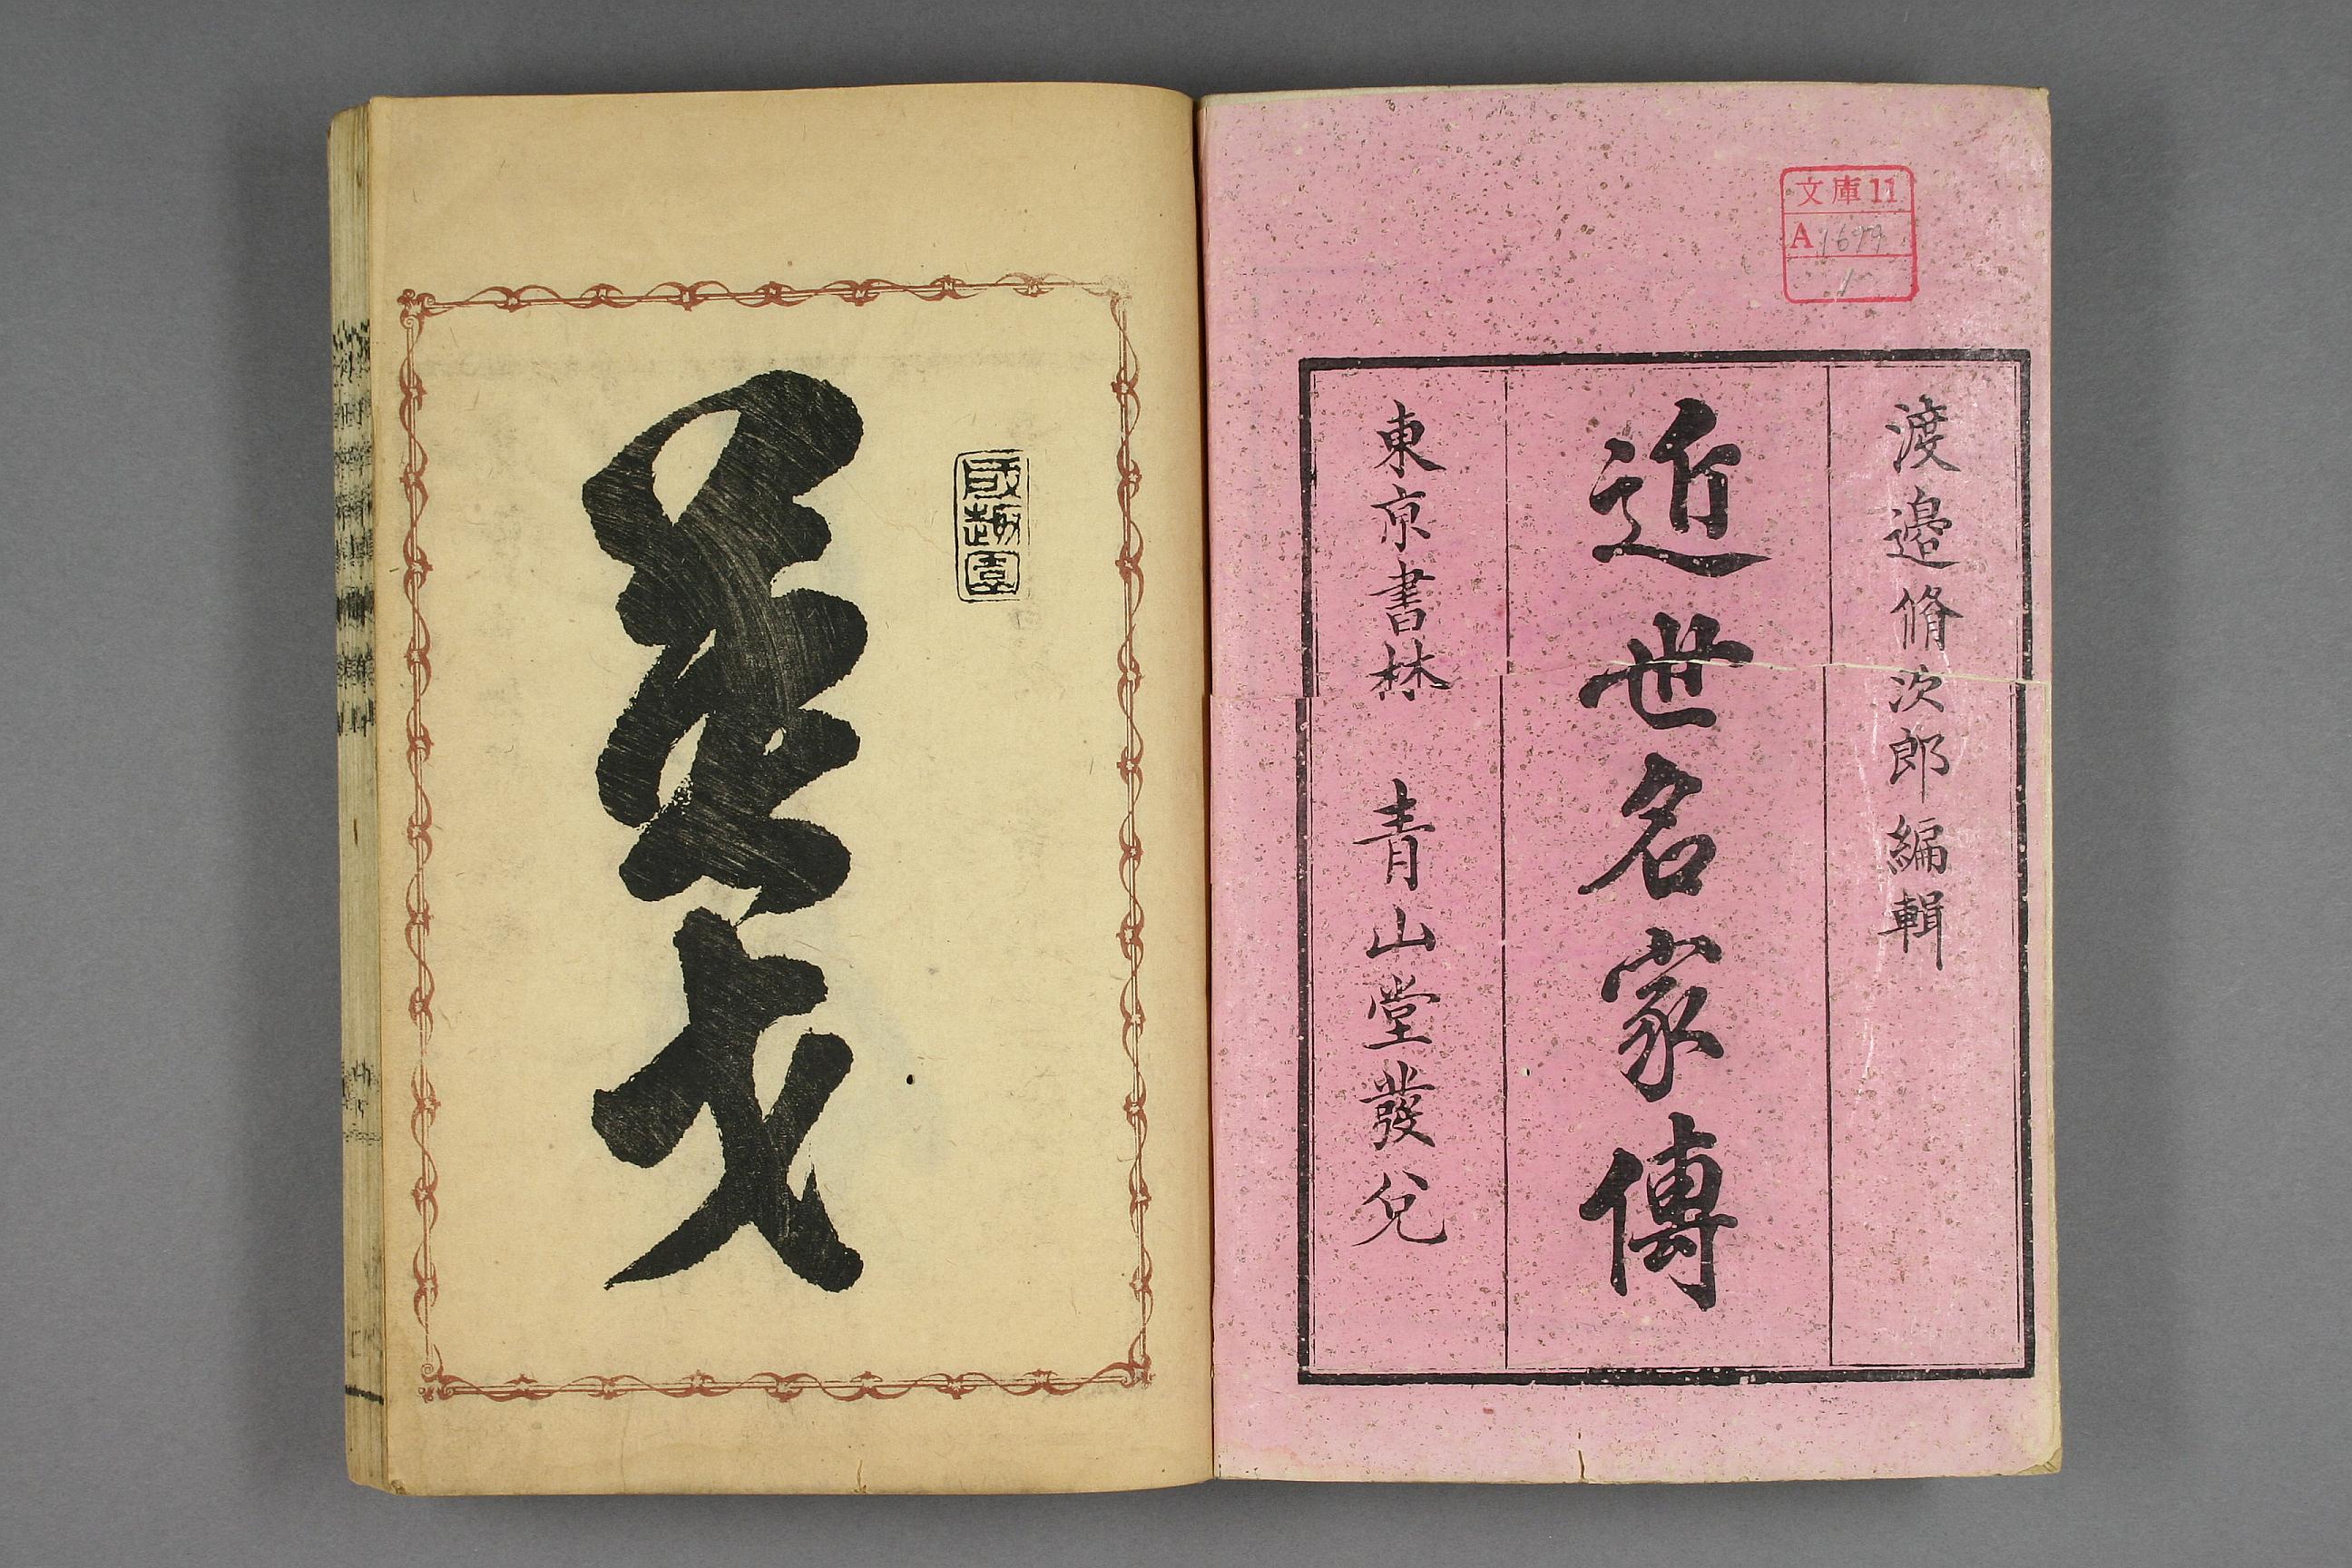 文庫11
A 1699
1
渡邉脩次郎編輯
近世名家傳
東京書林 青山堂發兌
成趣園